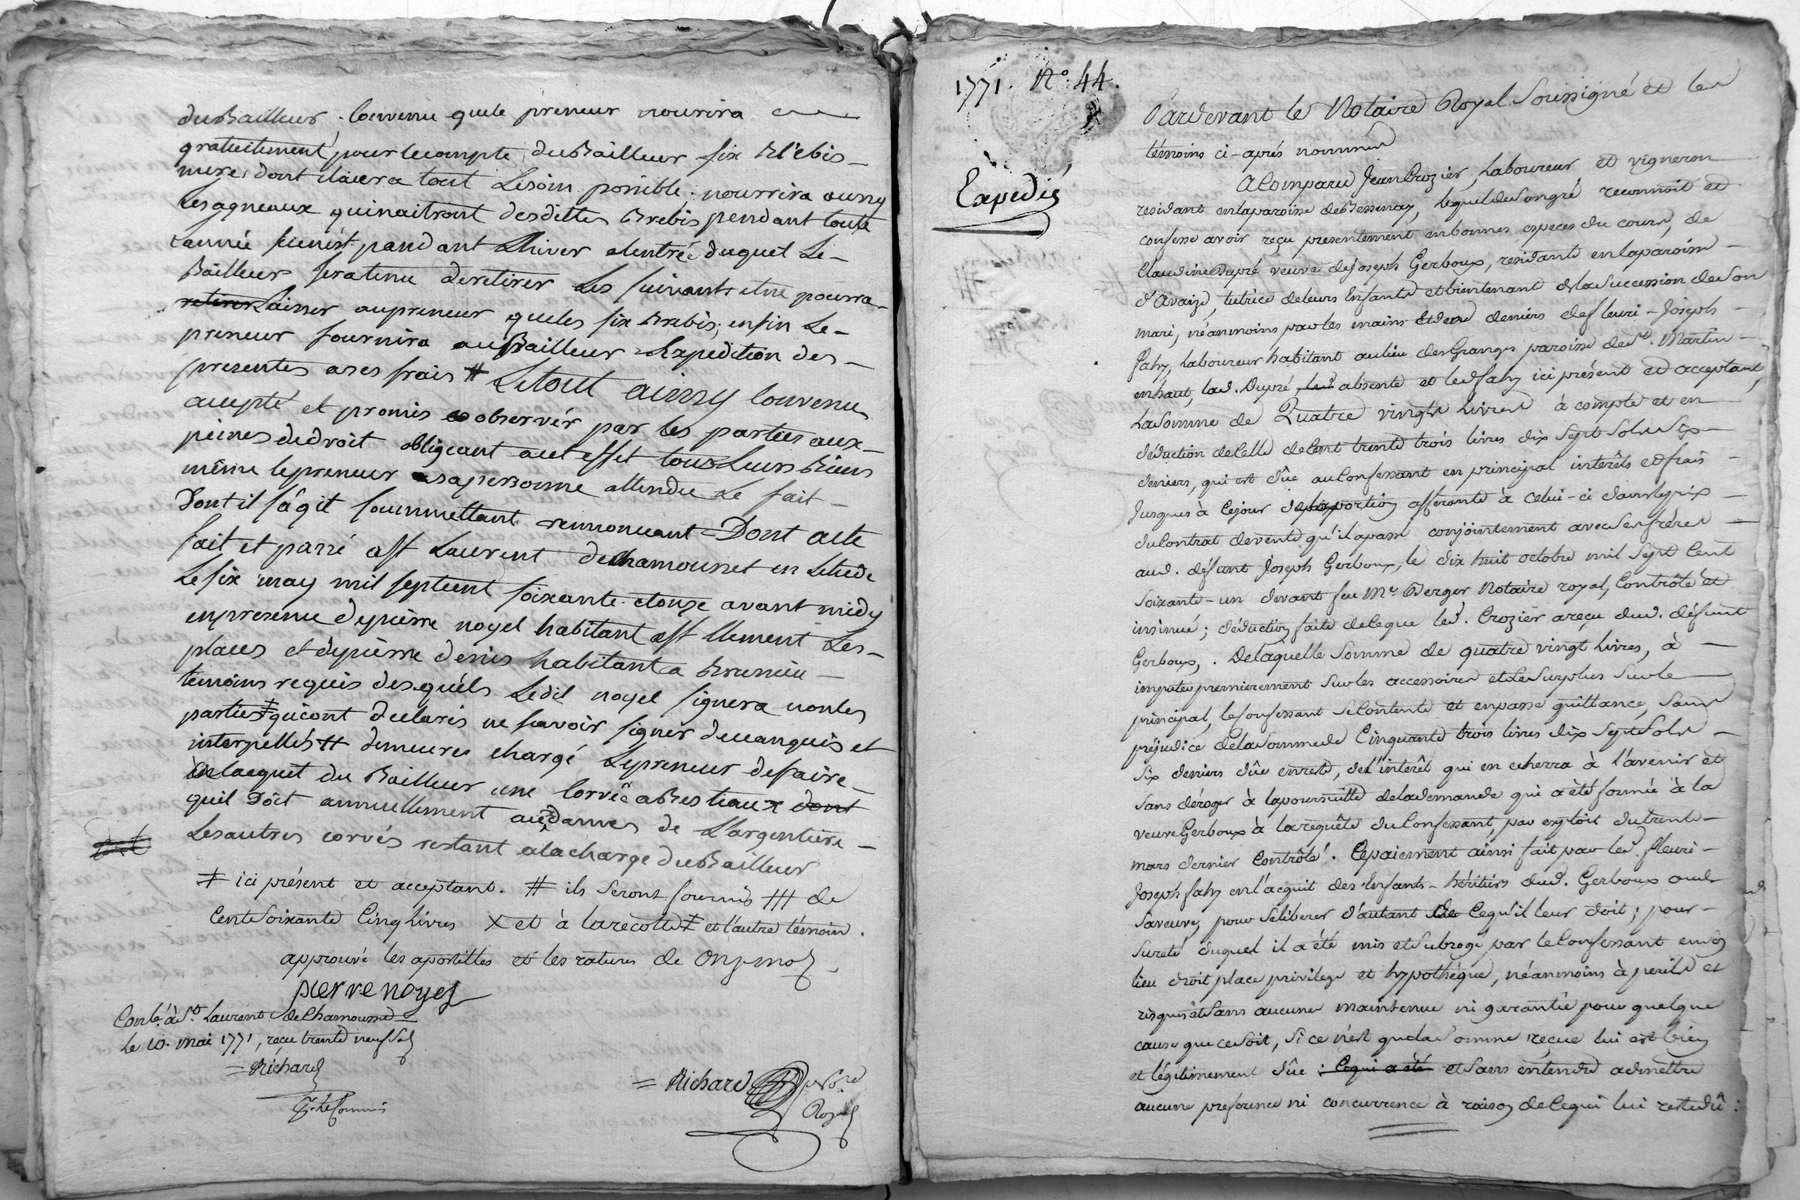 du Bailleur. Convenu que le preneur nourira
gratuitement pour le compte du Bailleur six Brebis
mere, dont il aura tout le soin possible; nourrira aussy
les agneaux qui naitront des dittes Brebis pendant toute
l'année si ce n'est pandant L'hiver a l'entrée duquel Le
Bailleur sera tenu de retirer les suivants et ne pourra
retirer Laisser au preneur que les six Brebis; enfin Le
preneur fournira au Bailleur Expedition des
presentes a ses frais # Le tout ainsy Convenu
accepté et promis observér par les parties aux
peines du droit obligeant a cet effet tous Leurs Biens
même le preneur sa personne attendu Le fait
Dont il s'âgit soummettant rennonceant Dont acte
fait et passé a St Laurent de Chamousset en L'étude
Le six may mil sept cent soixante et onze avant midy
en presence de pierre noyel habitant a St Clement Les
places et de pierre denis habitant a Brussieu
temoins requis desquéls Ledit noyel signera non les
parties ‡ qui ont declarés ne scavoir signer de ce enquis et
interpellés ## demeure chargé Le preneur de faire
a L'acquet du Bailleur une Corvée a Bestiaux dont
quil Doit annuellement aux dames de L'argentiere
Les autres corvés restant a la charge du Bailleur
‡ ici présent et acceptant. # ils seront fournis ### de
Cent Soixante Cinq Livres X et à la récolte ‡ et l'autre témoin.
approuvé les apostilles et les ratures de onze mots
pierre noyel
Conté. à St. Laurent de Chamousset
le 10. mai 1771, reçu trente neuf sols
= Richard
= Richard Nore
Royal
1771. No. 44.
Expedié
Pardevant le Notaire Royal Soussigné et les
témoins ci-après nommés
A Comparu Jean Crozier, Laboureur, et vigneron
residant en la paroisse de Bessenay, lequel de Son gré reconnoit et
confesse avoir reçu presentement en bonnes especes du cours, de
Claudine Dupré veuve de Joseph Gerboux, residante en la paroisse
d'Avaize, tutrice de leurs Enfants et bientenant de la Succession de Son
mari, néanmoins par les mains et des deniers de fleuri-Joseph
fahy, Laboureur habitant au lieu des Granges paroisse de St. Martin
en haut, lad. Dupré absente et led. fahy ici présent et acceptant,
La Somme de Quatre vingts Livres à compte et en
déduction de Celle de Cent trente trois livres dix Sept Sols Six
deniers, qui est dûe au Confessant en principal interêts et frais
jusques à Ce jour de portion afferante à celui-ci dans le prix
du Contrat de vente qu'il a passé conjointement avec Ses frères
aud. défunt Joseph Gerboux, le dix huit octobre mil Sept Cent
Soixante-un devant feu Me. Berger Notaire royal, Contrôlé et
insinué; déduction faite de Ce que led. Crozier a reçu dud. défunt
Gerboux,. De laquelle Somme de quatre vingt Livres, à
imputer premierement Sur les accessoires et Le Surplus Sur le
principal, le Confessant Se Contente et en passe quittance, Sans
préjudice de la Somme de Cinquante trois livres dix Sept Sols
Six deniers dûe en reste, de l'interêt qui en echerra à l'avenir et
Sans déroger à la poursuitte de la demande qui a été formée à la
veuve Gerboux à la requête du Confessant, par exploit du trente
mars dernier Contrôlé. Ce paiement ainsi fait par led. fleuri-
Joseph fahy en l'acquit des Enfants-héritiers dud. Gerboux et de
Sa veuve, pour Se liberer d'autant de Ce qu'il leur doit; pour
Sureté duquel il a été mis et Subrogé par le Confessant en Son
lieu droit place privilege et hypothéque, néanmoins à perils et
risques et Sans aucune maintenue ni garantie pour quelque
cause que ce Soit, Si ce n'est que la Somme reçue lui est bien
et légitimement dûe : Ce qui a été et Sans entendre admettre
aucune preference ni concurrence à raison de Ce qui lui reste dû :